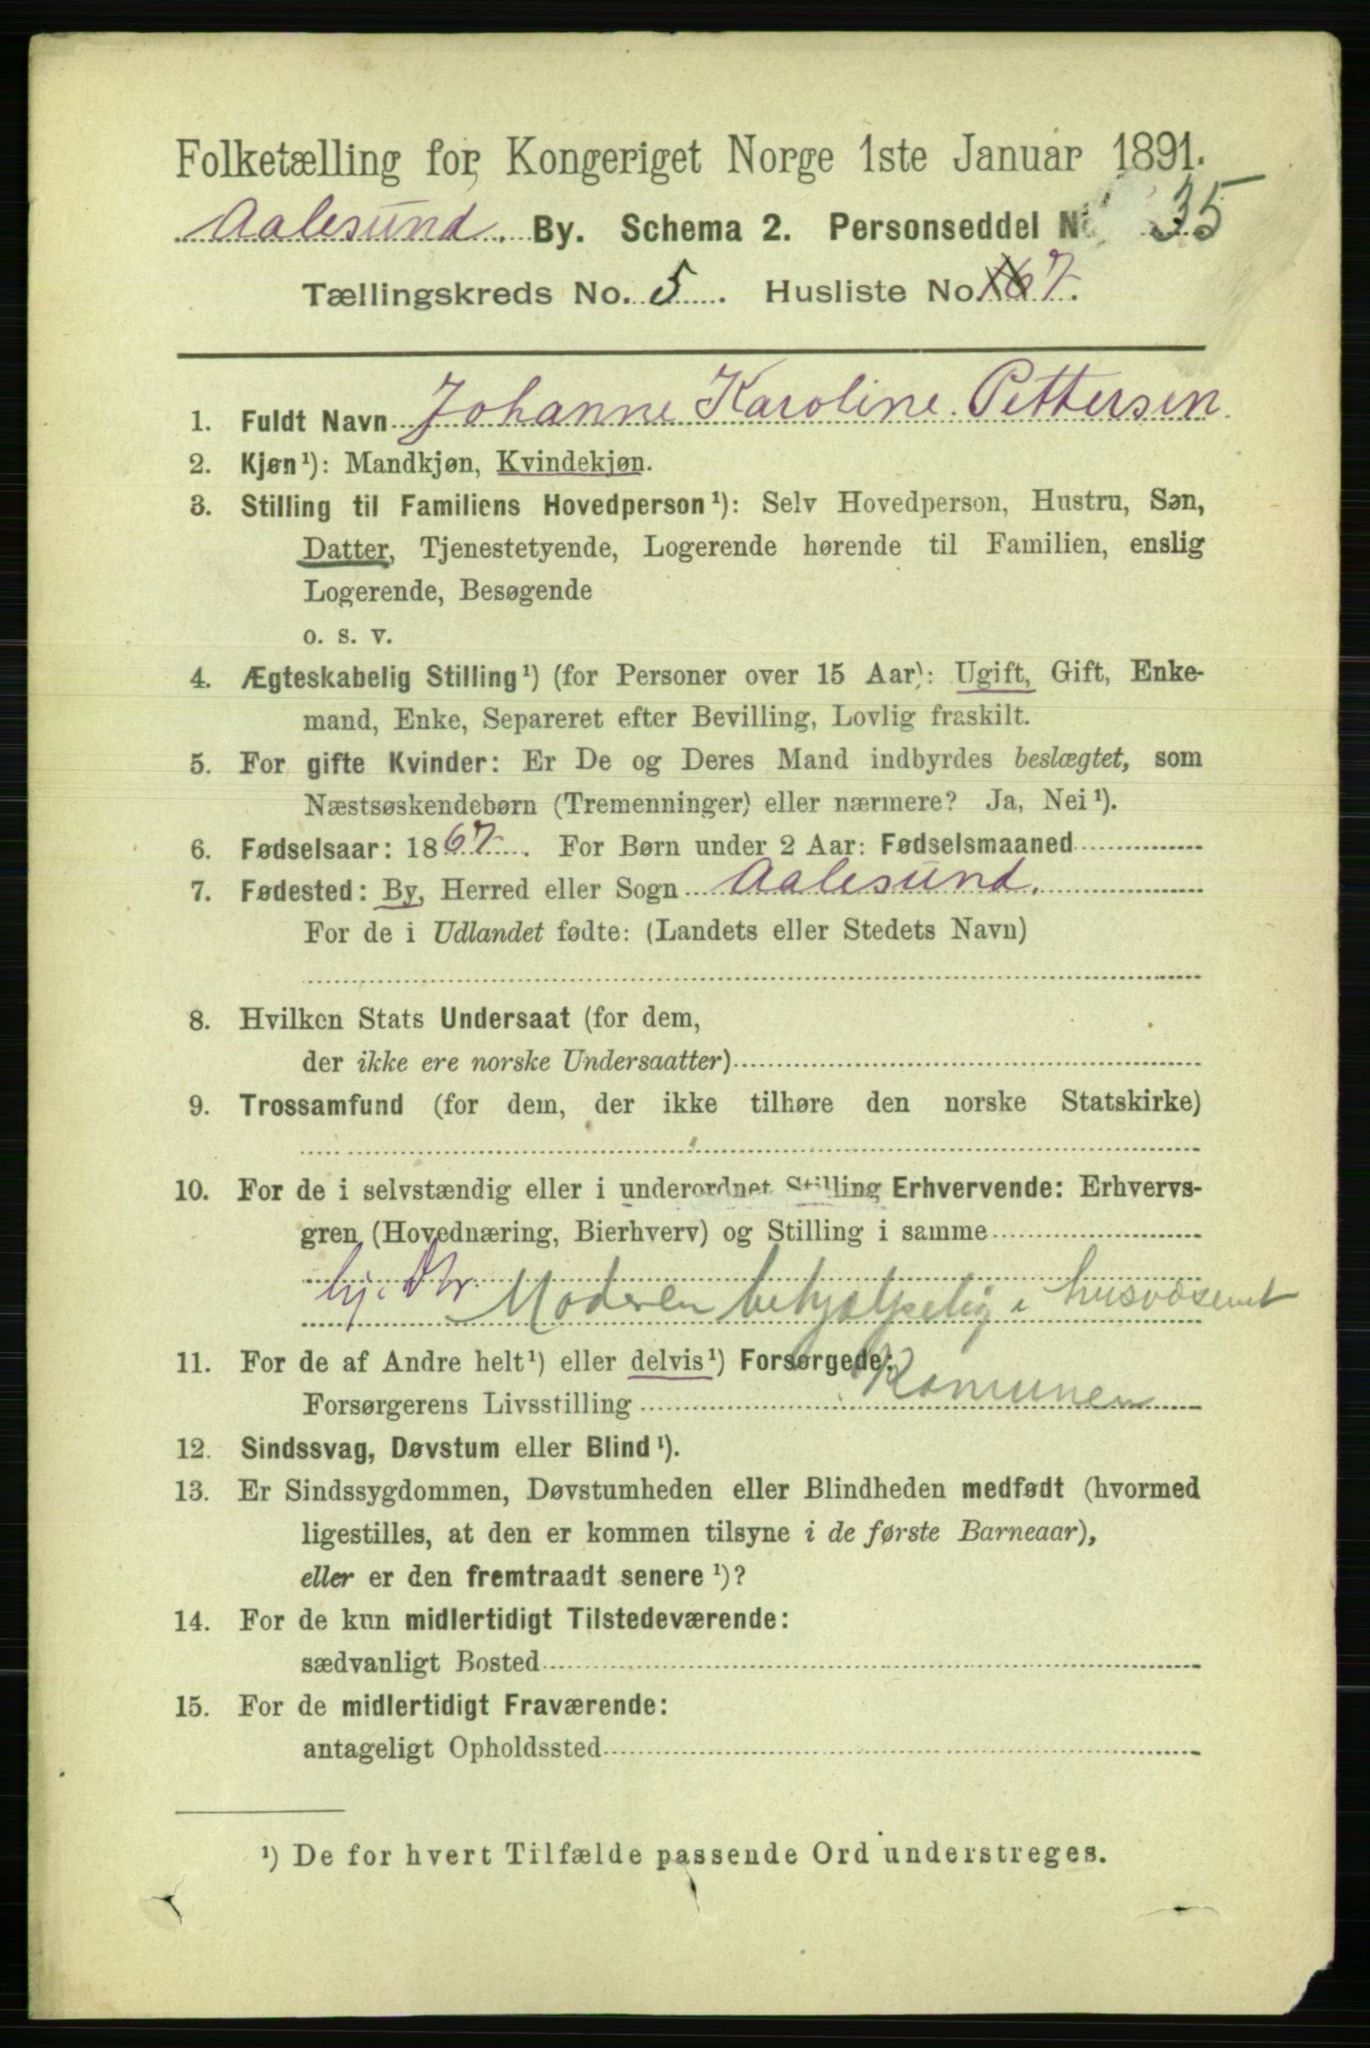 Folketælling for Kongeriget Norge 1ste Januar 1891.
Aalesund. By. Schema 2. Personseddel N 35
Tællingskreds No. 5. Husliste No. 67.
1. Fuldt Navn Johanne Karoline Pettersen.
2. Kjøn¹): Mandkjøn, Kvindekjøn.
3. Stilling til Familiens Hovedperson¹): Selv Hovedperson, Hustru, Søn,
Datter, Tjenestetyende, Logerende hørende til Familien, enslig
Logerende, Besøgende
o. s. v.
4. Ægteskabelig Stilling¹) (for Personer over 15 Aar): Ugift, Gift, Enke-
mand, Enke, Separeret efter Bevilling, Lovlig fraskilt.
5. For gifte Kvinder: Er De og Deres Mand indbyrdes beslægtet, som
Næstsøskendebørn (Tremenninger) eller nærmere? Ja, Nei¹).
6. Fødselsaar: 1867. For Børn under 2 Aar: Fødselsmaaned
7. Fødested: By, Herred eller Sogn Aalesund.
For de i Udlandet fødte: (Landets eller Stedets Navn)
8. Hvilken Stats Undersaat (for dem,
der ikke ere norske Undersaatter)
9. Trossamfund (for dem, der ikke tilhøre den norske Statskirke)
10. For de i selvstændig eller i underordnet Stilling Erhvervende: Erhvervs-
gren (Hovednæring, Bierhverv) og Stilling i samme
Moderen behjælpelig i husvæsenet
11. For de af Andre helt¹) eller delvis¹) Forsørgede:
Forsørgerens Livsstilling Komunen
12. Sindssvag, Døvstum eller Blind¹).
13. Er Sindssygdommen, Døvstumheden eller Blindheden medfødt (hvormed
ligestilles, at den er kommen tilsyne i de første Barneaar),
eller er den fremtraadt senere¹)?
14. For de kun midlertidigt Tilstedeværende:
sædvanligt Bosted
15. For de midlertidigt Fraværende:
antageligt Opholdssted
¹) De for hvert Tilfælde passende Ord understreges.